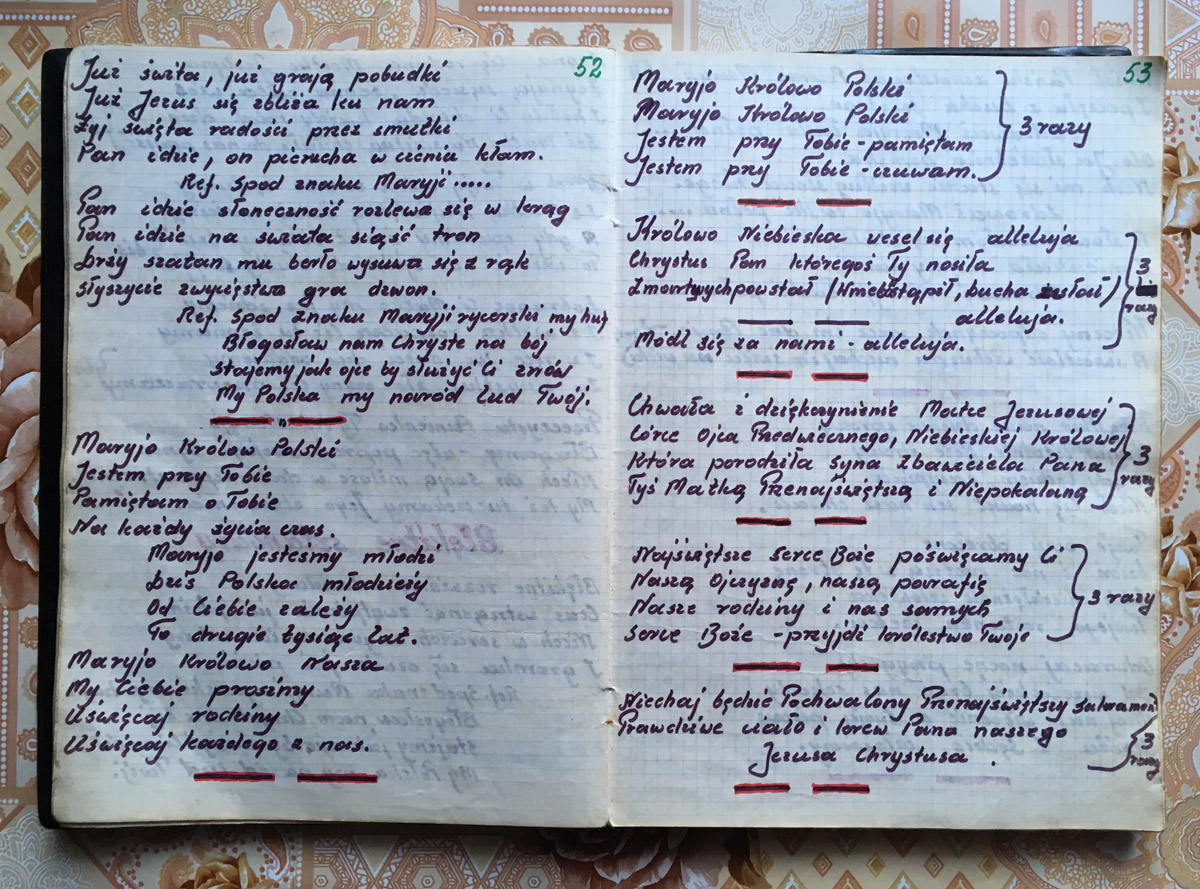 52
Już świta, już grają pobudki
Już Jezus się zbliża ku nam
Żyj święta radości przez smutki
Pan idzie, on pierzcha w cieniu kłam.
Ref. Spod znaku Maryji.....
Pan idzie słoneczność rozlewa się w krąg
Pan idzie na świata siąść tron
Drży szatan mu berło wysuwa się z rąk
Słyszycie zwycięstwa gra dzwon.
Ref. Spod znaku Maryji rycerski my huf
Błogosław nam Chryste na bój
Stajemy jak ojce by służyć Ci znów
My Polska my naród Lud Twój.
Maryjo Królow Polski
Jestem przy Tobie
Pamiętam o Tobie
Na każdy życia czas.
Maryjo jesteśmy młodzi
Dziś Polska młodzieży
Od Ciebie zależy
To drugie tysiąc lat.
Maryjo Królowo Nasza
My Ciebie prosimy
Uświęcaj rodziny
Uświęcaj każdego z nas.
53
Maryjo Królowo Polski
Maryjo Królowo Polski
Jestem przy Tobie - pamiętam
Jestem przy Tobie - czuwam.
3 razy
Królowo Niebieska wesel się alleluja
Chrystus Pan któregoś Ty nosiła
Zmartwychpowstał (Wniebstąpił, Ducha zesłał)
alleluja.
Módl się za nami - alleluja.
3
razy
Chwała i dziękczynienie Matce Jezusowej
Córce Ojca Przedwiecznego, Niebieskiej Królowej
Która porodziła Syna Zbawiciela Pana
Tyś Matką Przenajświętszą i Niepokalaną
3
razy
Najświętsze Serce Boże poświęcamy Ci
Naszą Ojczyznę, naszą parafię
Nasze rodziny i nas samych
Serce Boże - przyjdź królestwo Twoje
3 razy
Niechaj będzie Pochwalony Przenajświętszy Sakrament
Prawdziwe ciało i krew Pana naszego
Jezusa Chrystusa .
3
razy